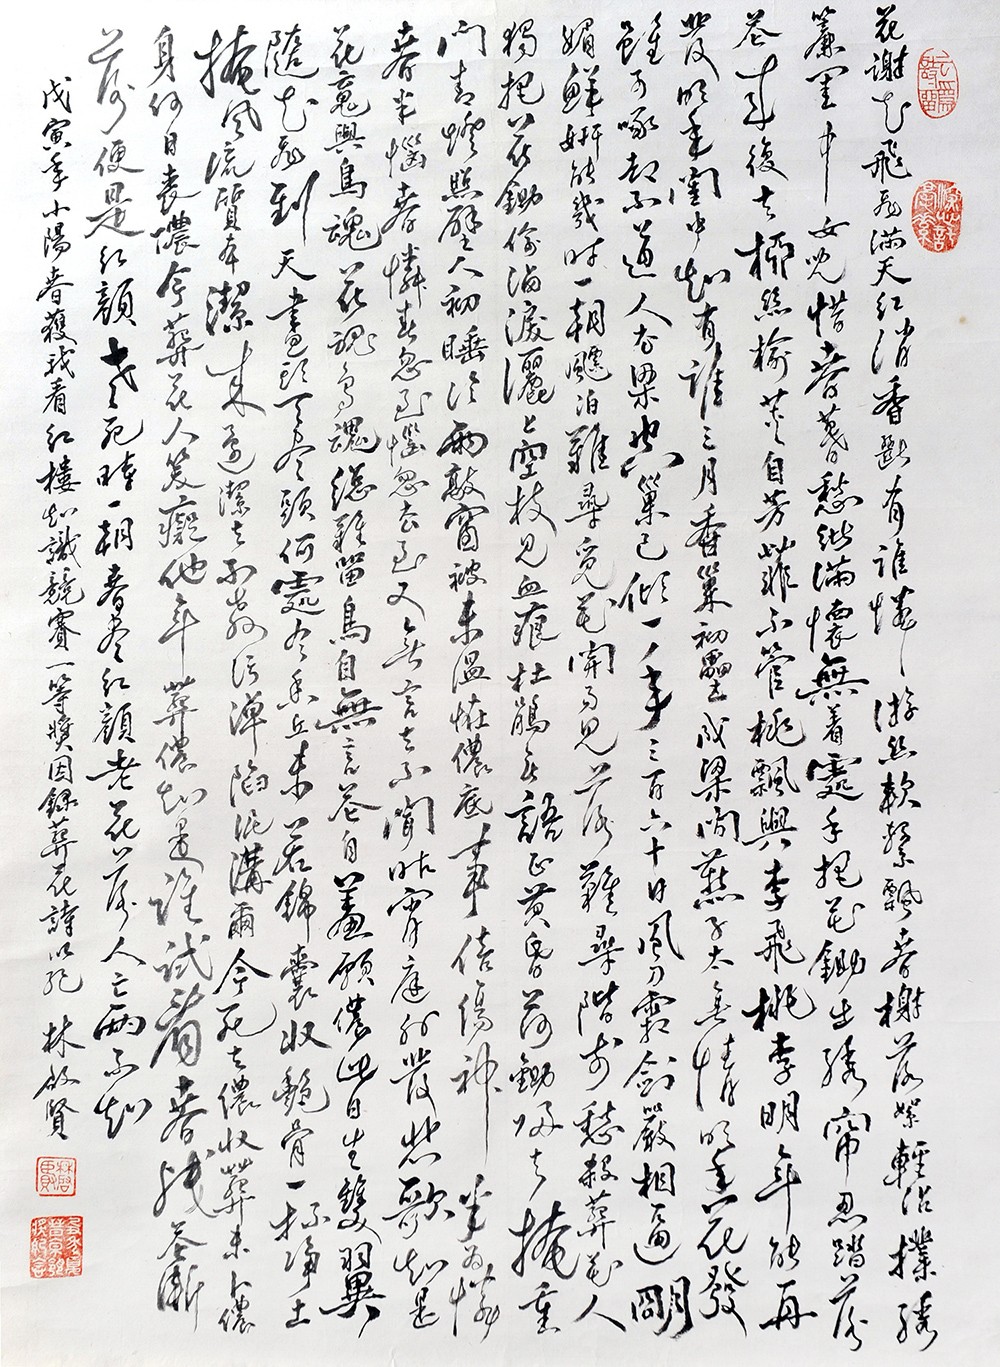 花謝花飛飛滿天紅消香斷有誰憐游絲軟繫飄春榭落絮輕沾撲繡
簾閨中女兒惜春暮愁緒滿懷無着處手把花鋤出繡帘忍踏落
花來復去柳絲榆莢自芳菲不管桃飄與李飛桃李明年能再
發明年閨中知有誰三月香巢初壘成梁間燕子太無情明年花發
雖可啄却不道人去梁空巢已傾一年三百六十日風刀霜劍嚴相逼明
媚鮮妍能幾時一朝飄泊難尋覓花開易見落難尋階前愁殺葬花人
獨把花鋤偷洒淚灑上空枝見血痕杜鵑無語正黃昏荷鋤歸去掩重
門青燈照壁人初睡冷雨敲窗被未溫怪儂底事倍傷神半為憐
春半惱春憐春忽至惱忽去至又無言去不聞昨宵庭外發悲歌知是
花魂與鳥魂花魂鳥魂總難留鳥自無言花自羞願儂此日生雙翼
隨花飛到天盡頭天盡頭何處有香丘未若錦囊收艷骨一抔淨土
掩風流質本潔來還潔去不教污淖陷泥溝爾今死去儂收葬未卜儂
身何日喪儂今葬花人笑癡他年葬儂知是誰試看春殘花漸
落便是紅顏老死時一朝春盡紅顏老花落人亡兩不知
戊寅年小陽春獲我看紅樓知識競賽一等獎因錄葬花詩以紀 林啟賢